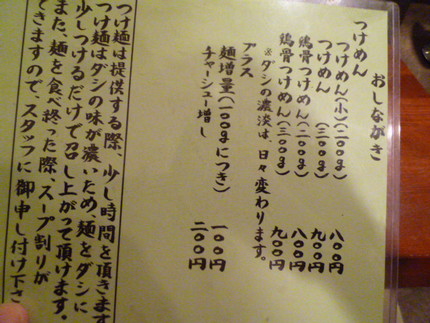 おしながき
つけめん
つけめん(小)(二〇〇g) 八〇〇円
つけめん (三〇〇g) 九〇〇円
鶏骨つけめん(二〇〇g) 八〇〇円
鶏骨つけめん(三〇〇g) 九〇〇円
※ダシの濃淡は、日々変わります。
プラス
麺増量(一〇〇gにつき) 一〇〇円
チャーシュー増し 二〇〇円
つけ麺は提供する際、少し時間を頂きます
つけ麺はダシの味が濃いため、麺をダシに
少しつけるだけで召し上がって頂けます。
また、麺を食べ終った際、スープ割りが
できますので、スタッフに御申し付け下さ